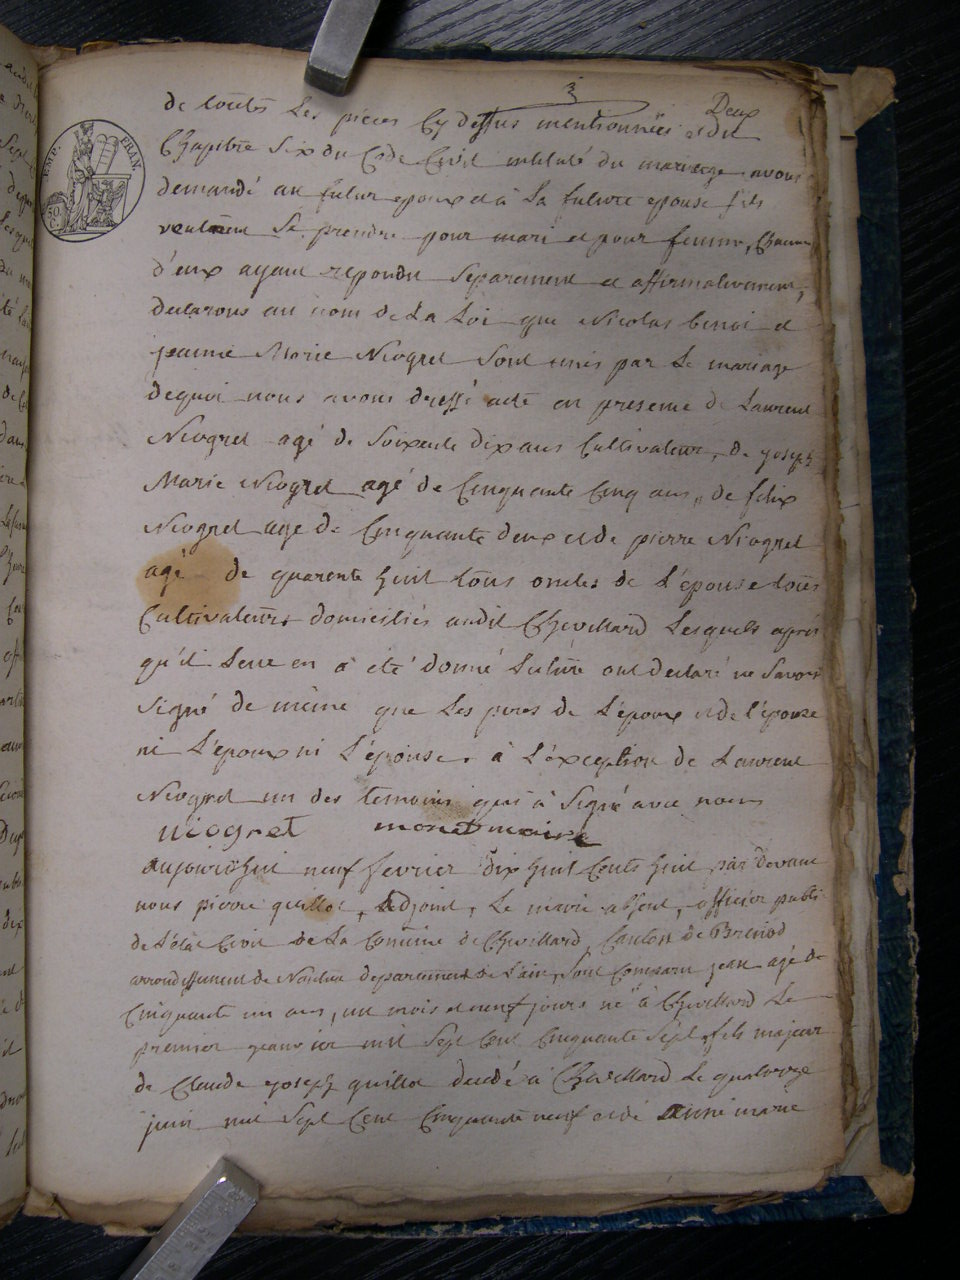 3
Deux
de toutes Les pièces Cy dessus mentionnées et du
Chapitre Six du Code Civil intitulé du mariage avons
EMP. FRAN.
50 C.
demandé au futur epoux et à La future epouse s'ils
veulent Se prendre pour mari et pour femme, Chacun
d'eux ayant repondu Separement et affirmativement,
declarons au nom de La Loi que Nicolas benoi et
jeanne Marie Niogret Sont unis par Le mariage
de quoi nous avons dressé acte en presence de Laurent
Niogret agé de Soixente dix ans Cultivateur, de joseph
Marie Niogret agé de Cinquante Cinq ans, de felix
Niogret age de Cinquante deux et de pierre Niogret
agé de quarente huit tous oncles de L'épouse tous
Cultivateurs domiciliés audit Chevillard Lesquels après
qu'il Leur en a été donné Lecture ont declaré ne Savoir
Signé de même que Les peres de L'époux et de l'épouse
ni L'époux ni L'épouse, à L'éxception de Laurent
Niogret un des temoins qui à Signé avec nous
niogret monet maire
aujourd'hui neuf fevrier dix huit Cents huit par devant
nous pierre guillot, Adjoint, Le maire absent, officier publi
de L'état Civil de La Commune de Chevillard, Canton de Brénod
arrondissement de Nantua departement de L'ain, Sont Comparu jean agé de
Cinquante un ans, un mois et neuf jours né à Chevillard Le
premier janvier mil Sept Cent Cinquante Sept, fils majeur
de Claude joseph guillot decédé à Chevillard Le quatorze
juin mil Sept Cent Cinquante neuf et de anne marie